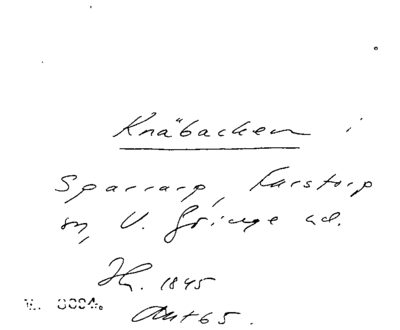 Knäbacken i
Sparrarp, Farstorp
sn, V. Göinge hd.
Jh. 1845
Ant 65.